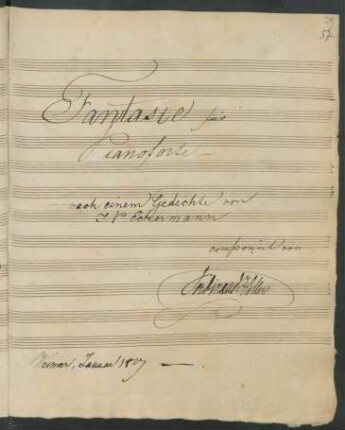 57
Fantasie für
Pianoforte
nach einem Gedichte von
J. P. Eckermann
componirt von
Ferdinand Hiller
Weimar, Januar 1827